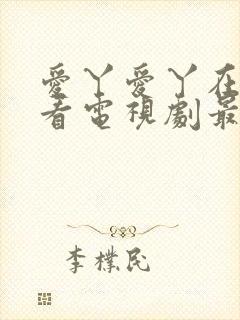 愛丫愛丫在
看電視劇最
李樸民